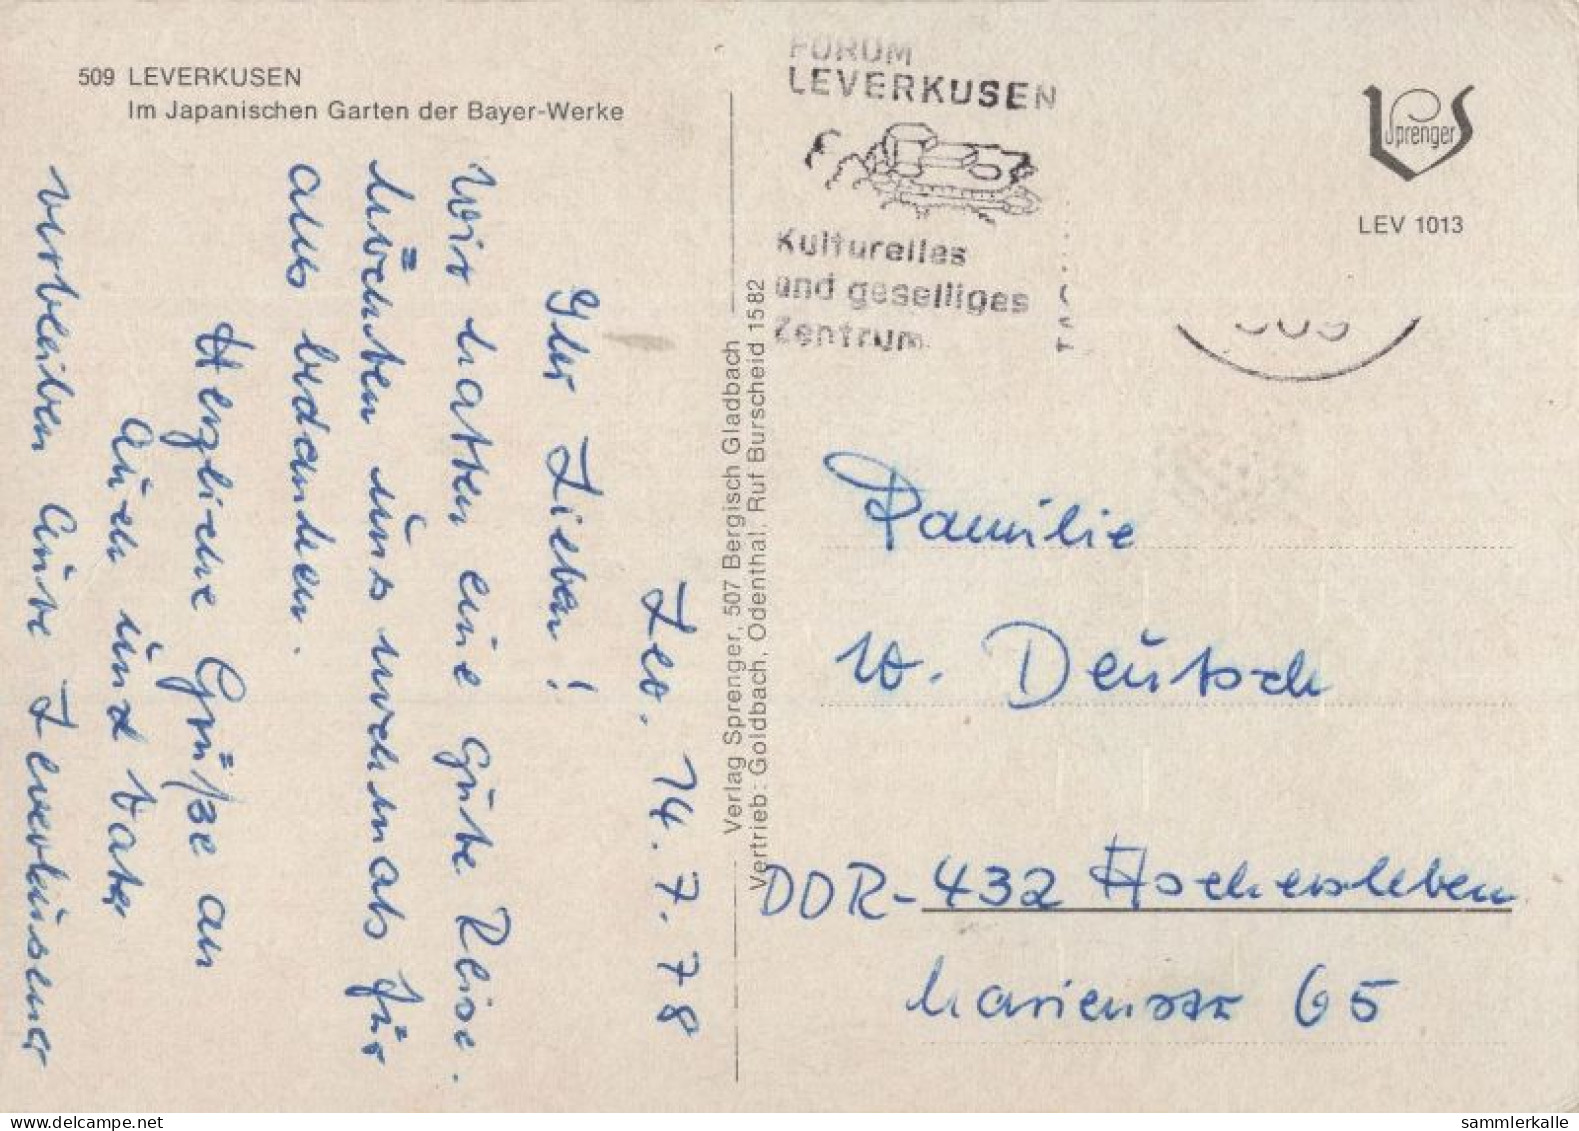 509 LEVERKUSEN
Im Japanischen Garten der Bayer-Werke
FORUM
LEVERKUSEN
Kulturelles
und geselliges
Zentrum
509
Sprenger
LEV 1013
Verlag Sprenger, 507 Bergisch Gladbach
Vertrieb: Goldbach, Odenthal, Ruf Burscheid 1582
Lev. 14.7.78
Ihr Lieben!
Wir hatten eine gute Reise.
Möchten uns nochmals für
alles bedanken.
Herzliche Grüße an
auch und Vater
verbleiben Eure Leverkusener
Familie
W. Deutsch
DDR-432 Aschersleben
Marienstr 65
sammlerkalle